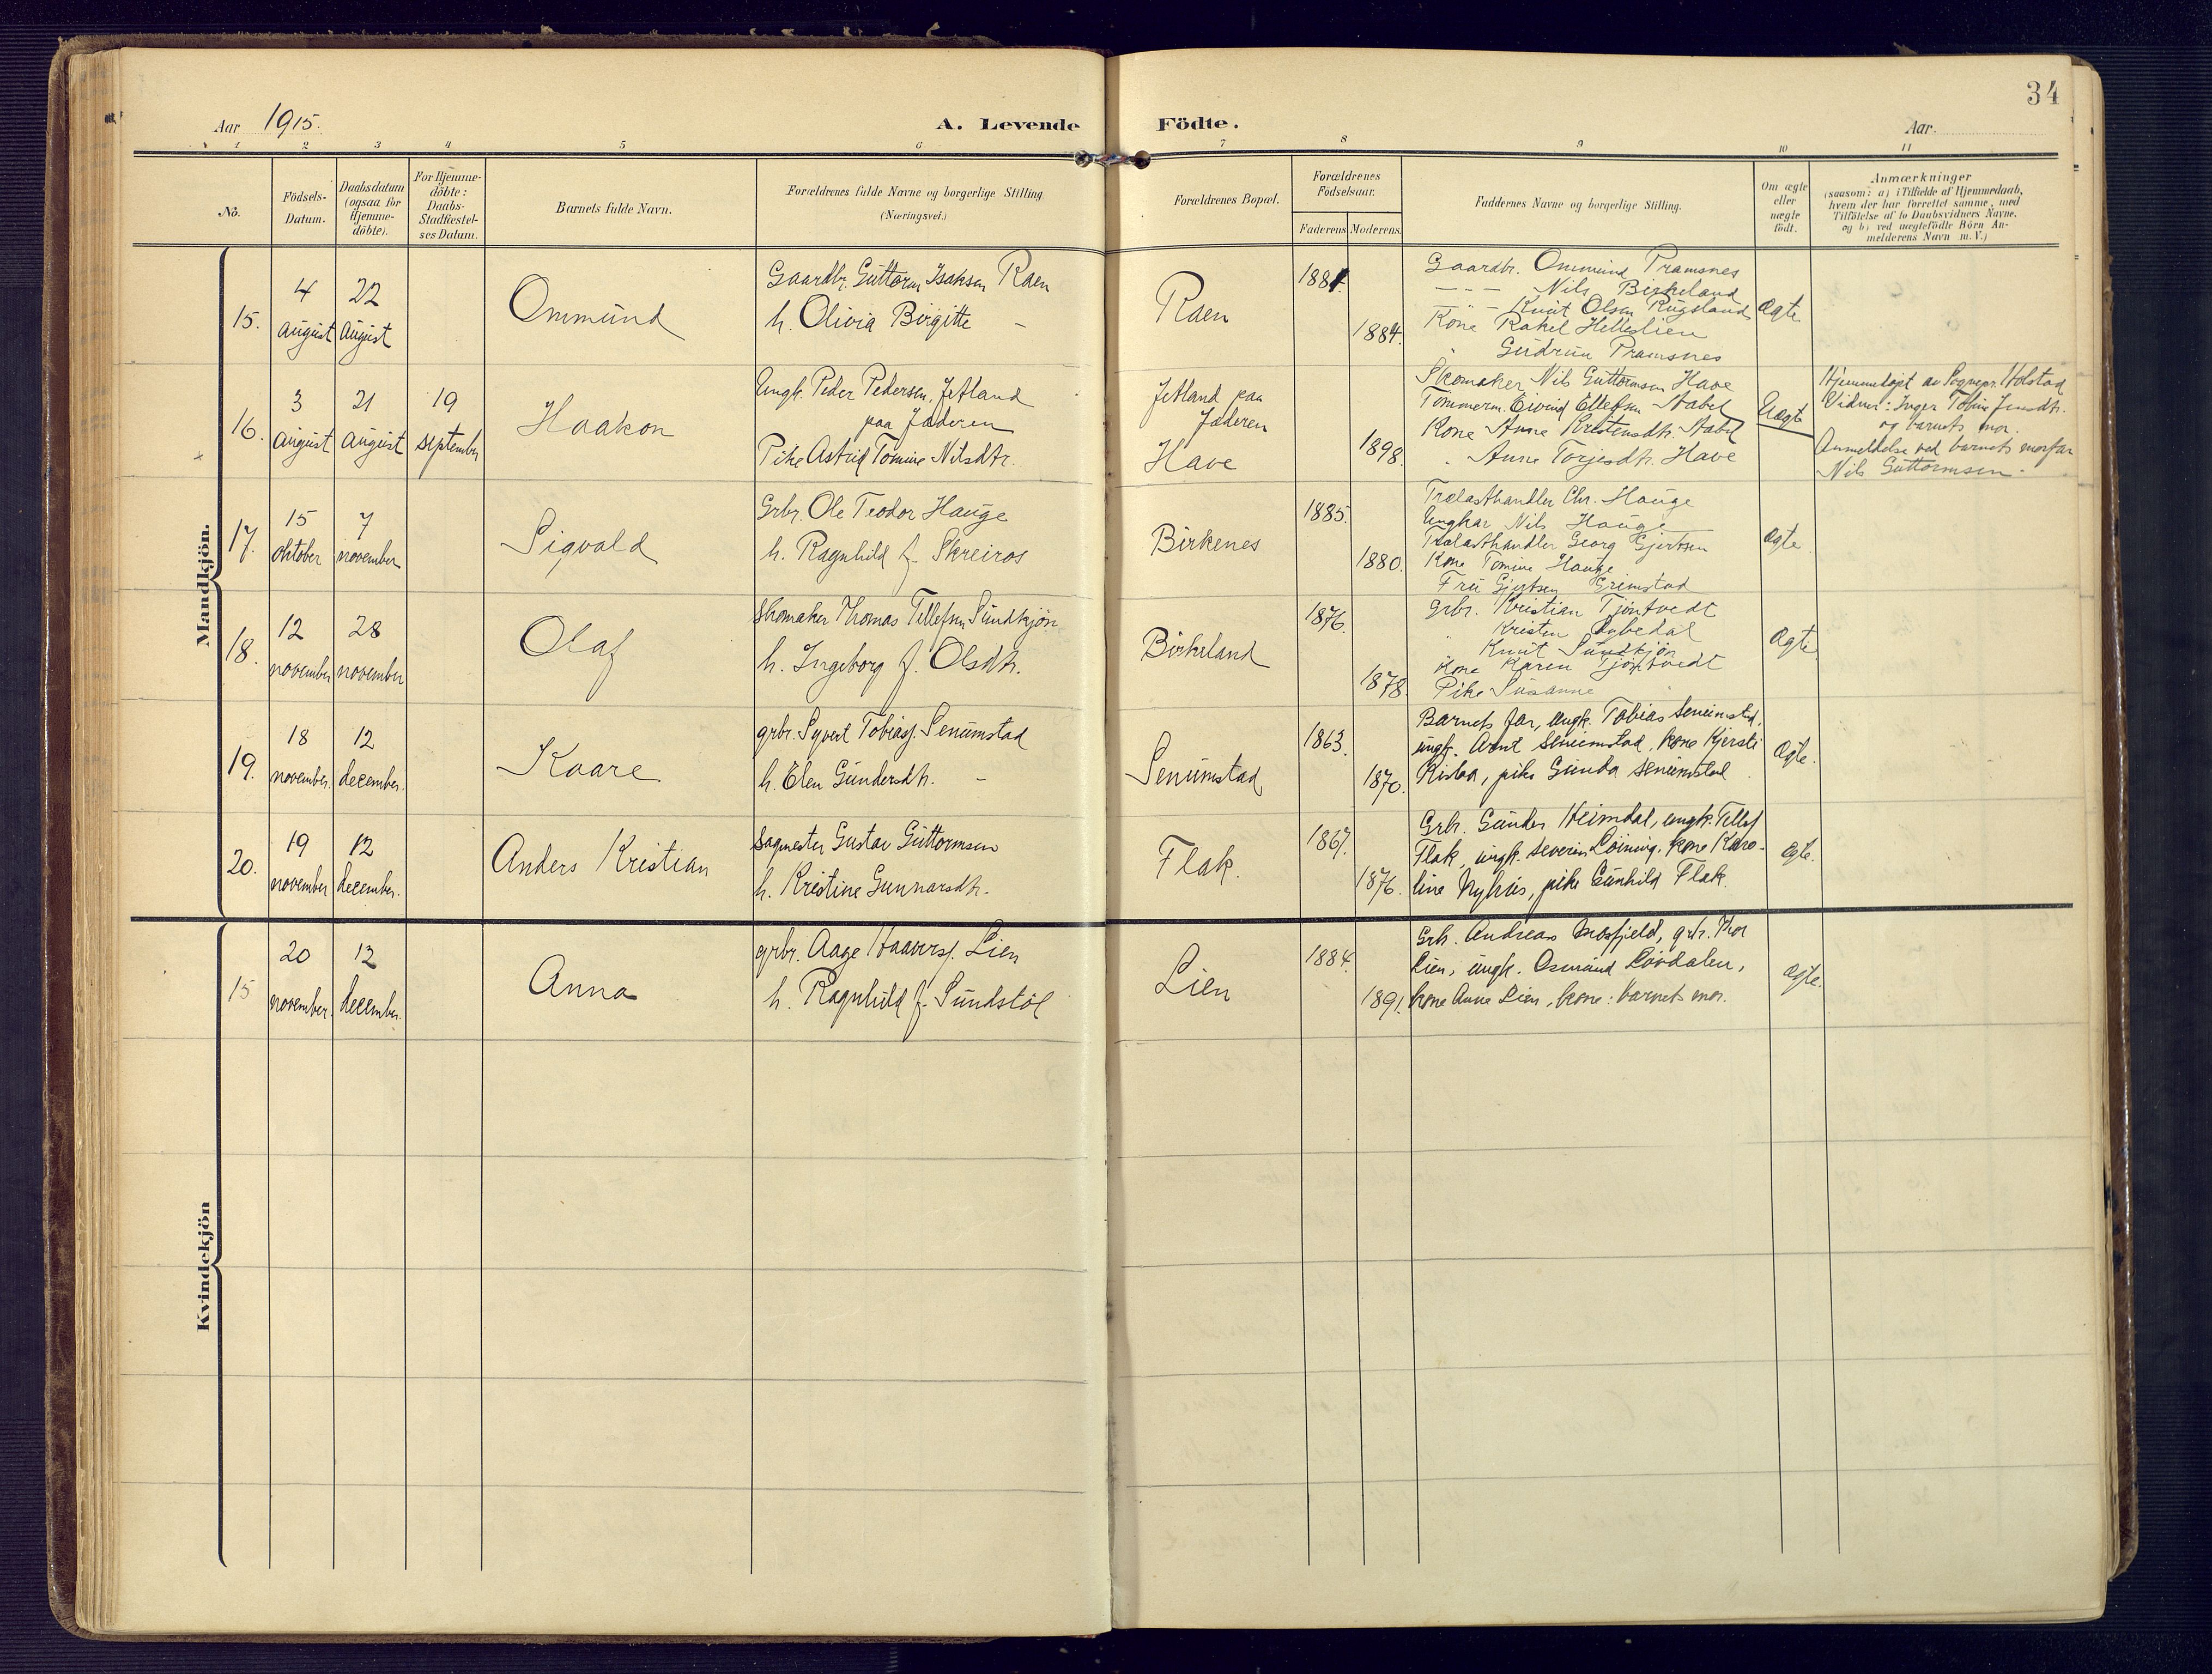 34
Aar 1915.
A. Levende Födte.
Aar.
1 2 3 4 5 6 7 8 9 10 11
No.
Födsels-
Datum.
Daabsdatum
(ogsaa for
Hjemme-
döbte).
For Hjemme-
döbte:
Daabs-
Stadfæstel-
ses Datum.
Barnets fulde Navn.
Forældrenes fulde Navne og borgerlige Stilling
(Næringsvei.)
Forældrenes Bopæl.
Forældrenes
Födselsaar.
Faderens
Moderens.
Faddernes Navne og borgerlige Stilling.
Om ægte
eller
uægte
födt.
Anmærkninger
(saasom: a) i Tilfælde af Hjemmedaab,
hvem der har forrettet samme, med
Tilföielse af to Daabsvidners Navne,
og b) ved uægtefödte Börn An-
melderens Navn m.V.)
Mandkjön.
15.
4
august
22
august
Ommund
Gaardbr. Guttorm Isaksen Raen
h. Olivia Birgitte –
Raen
1881.
1884.
Gaardbr. Ommund Pramsnes
— " — Nils Birkeland
— " — Knut Olsen Rugsland
Kone Rakel Helleslien
" Gudrun Pramsnes
Ægte
16.
3
august
21
august
19
september
Haakon
Ungk. Peder Pedersen, Jetland
paa Jæderen
Pike Astrid Tomine Nilsdtr.
Jetland paa
Jæderen
Have
1898.
Skomaker Nils Guttormsen Have
Tømmerm. Eivind Ellefsen Stabel
Kone Anne Kristensdtr. Stabel
" Anne Torjesdtr. Have
Uægte
Hjemmedøpt av Sognepr. Holstad
Vidner: Inger Tobine Jensdtr.
og barnets mor.
Anmeldelse ved barnets morfar
Nils Guttormsen.
17.
15
oktober
7
november
Sigvald
Grbr. Ole Teodor Hauge
h. Ragnhild f. Skreiros
Birkenes
1885.
1880.
Trælasthandler Chr. Hauge
Ungkar Nils Hauge
Trælasthandler Georg Gjertsen
Kone Tomine Hauge
Fru Gjertsen Grimstad
Ægte
18.
12
november
28
november
Olaf
Skomaker Thomas Tellefsen Sundkjøn
h. Ingeborg f. Olsdtr.
Birkeland
1876.
1878.
Grbr. Kristian Tjøntvedt
" Kristen
Knut Sundkjøn
Kone Karen Tjøntvedt
Pike Susanne
Ægte
19.
18
november.
12
december.
Kaare
grbr. Syvert Tobiass. Senumstad
h. Elen Gundersdtr. –
Senumstad
1863.
1870.
Barnets far, ungk. Tobias Senumstad,
ungk. Arnt Senumstad, kone Kjersti
, pike Gunda Senumstad
Ægte.
20.
19
november
12
december.
Anders Kristian
Sagmester Gustav Guttormsen
h. Kristine Gunnarsdtr.
Flak.
1867.
1876.
Grbr. Gunder Heimdal, ungk. Tellef
Flak, ungk. Severin Löining, kone Karo-
line Nyhus, pike Gunhild Flak.
Ægte.
Kvindekjön
15
20
november.
12
december.
Anna
grbr. Aage Haavers. Lien
h. Ragnhild f. Sundstøl
Lien
1884.
1891.
Grbr. Andreas Mosfjeld, grbr. Thor
Lien, ungk. Osmund Lövdalen,
kone Anne Lien, kone: barnets mor.
Ægte.